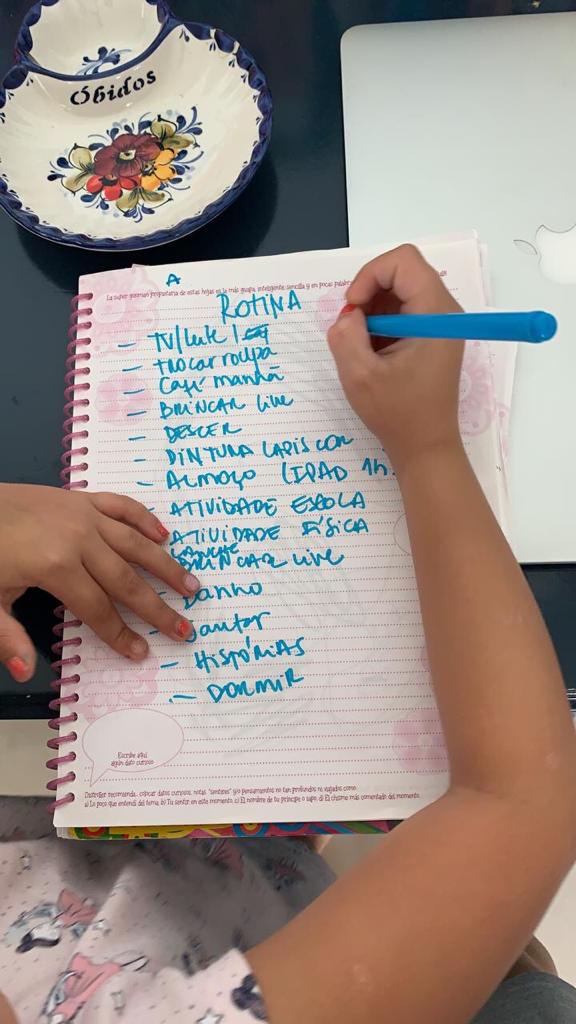 Óbidos
A
La super woman propietaria de estas hojas es la más guapa, inteligente, sencilla y en pocas palabras
ROTINA
- TV/Leite/
- trocar roupa
- Café manhã
- BRINCAR livre
- DESCER
- PINTURA LAPIS COR
- ALMOÇO (IPAD 1h.
- ATIVIDADE ESCOLA
ATIVIDADE FÍSICA
LANCHE
BRINCAR livre
- banho
- Jantar
- HISTÓRIAS
- DORMIR
Escribe aquí
algún dato curioso
Distroller recomienda, colocar datos curiosos, notas, "sentires" y/o pensamientos no tan profundos ni viajados como:
a) Lo poco que entendí del tema. b) Tu sentir en este momento. c) El nombre de tu príncipe o sapo. d) El chisme más comentado del momento.